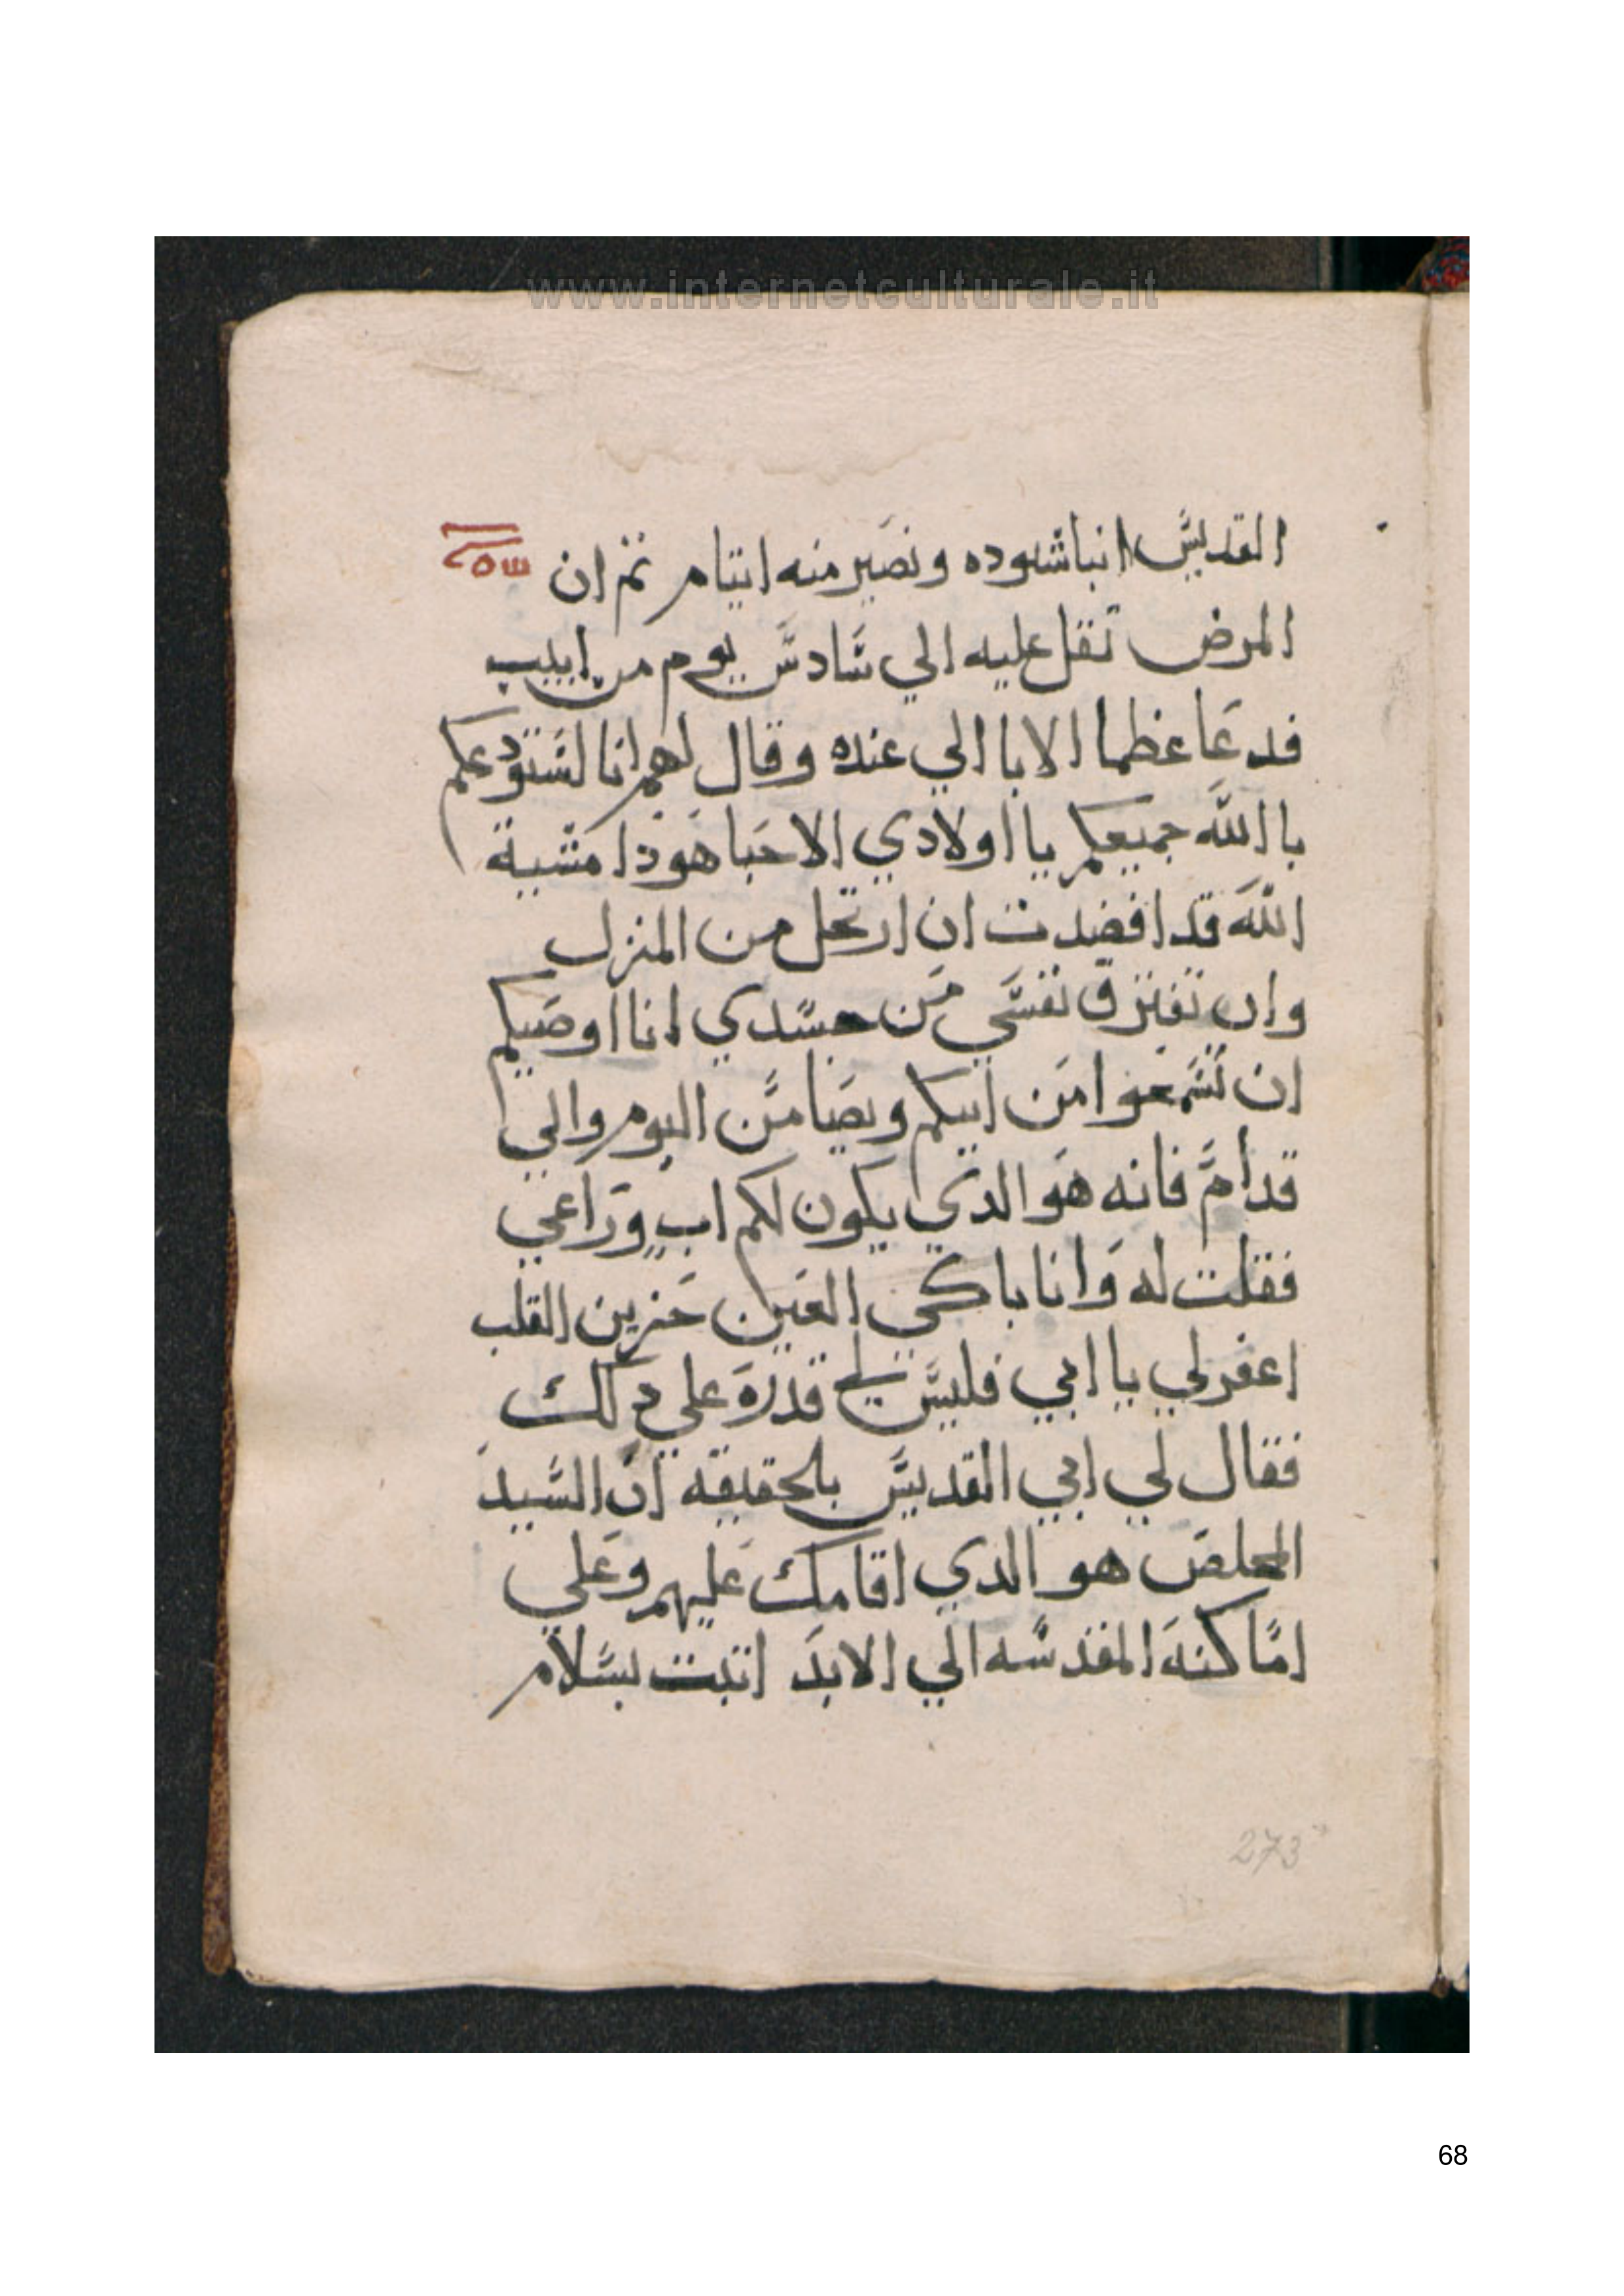 www.internetculturale.it
القديس انبا شنوده ونصير منه ايتام ثم ان
المرض تقل عليه الي سادس يوم من ابيب
فدعا عظما الابا الي عنده وقال لهم انا استودعكم
با الله جميعكم يا اولادي الاحبا هودا مشية
الله قد افضدت ان ارتحل من المنزل
وان تفترق نفسي من جسدي انا اوصيكم
ان تسمعوا من ابيكم ويصا من اليوم والي
قدام فانه هو الدي يكون لكم اب وراعي
فقلت له وانا باكي العين حزين القلب
اغفر لي يا ابي فليس لي قدره علي دلك
فقال لي ابي القديس بالحقيقه ان السيد
المخلص هو الدي اقامك عليهم وعلي
اماكنه المقدسه الي الابد اتبت بسلام
273
68